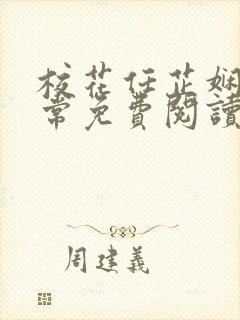 校花任芷娴
常免費閱讀
周建義